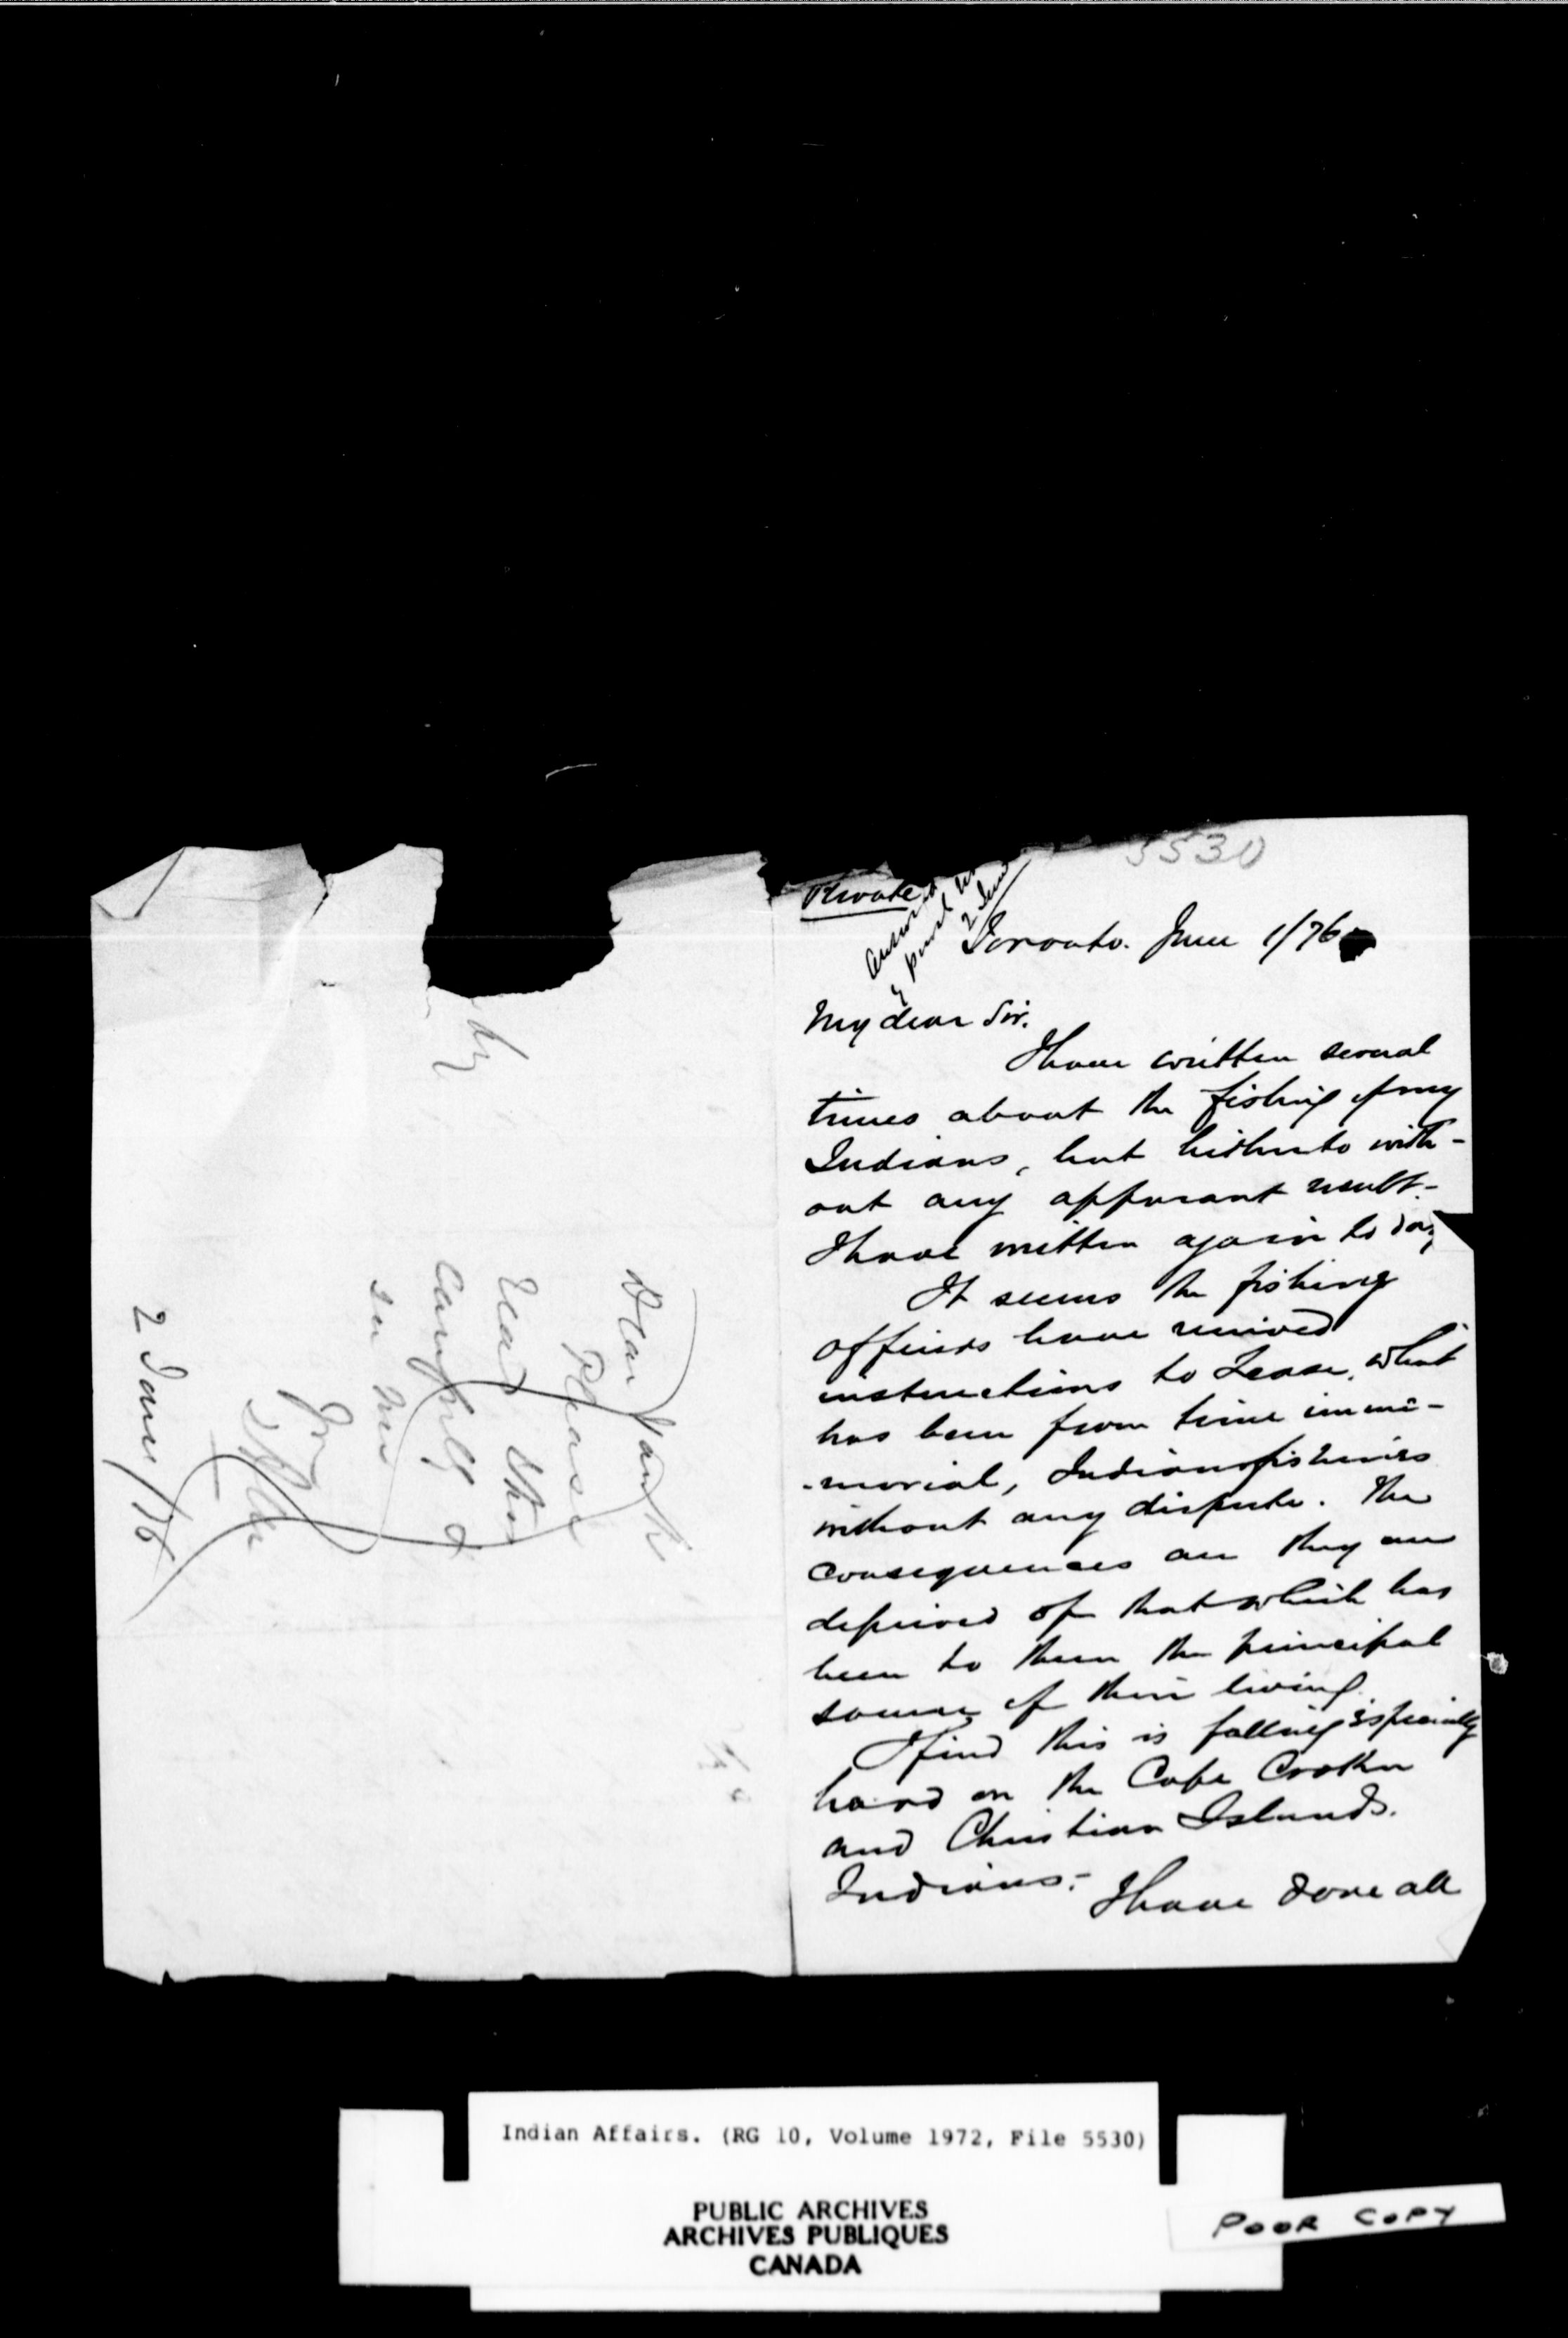 5530
Private
Answered
2 June
Toronto. June 1/76
My dear Sir.
I have written several
times about the fishing of my
Indians, but hitherto with-
out any apparant result-
I have written again to day
It seems the fishing
officers have received
instructions to Lease, what
has been from time imme-
-morial, Indian fisheries
without any dispute. The
consequences are they are
deprived of that which has
been to them the principal
source of their living.
I find this is falling especially
hard on the Cape Croker
and Christian Islands.
Indians:- I have done all
Dear
Please
read this
carefully &
see me
2 June/76
Indian Affairs. (RG 10, Volume 1972, File 5530)
PUBLIC ARCHIVES
ARCHIVES PUBLIQUES
CANADA
POOR COPY